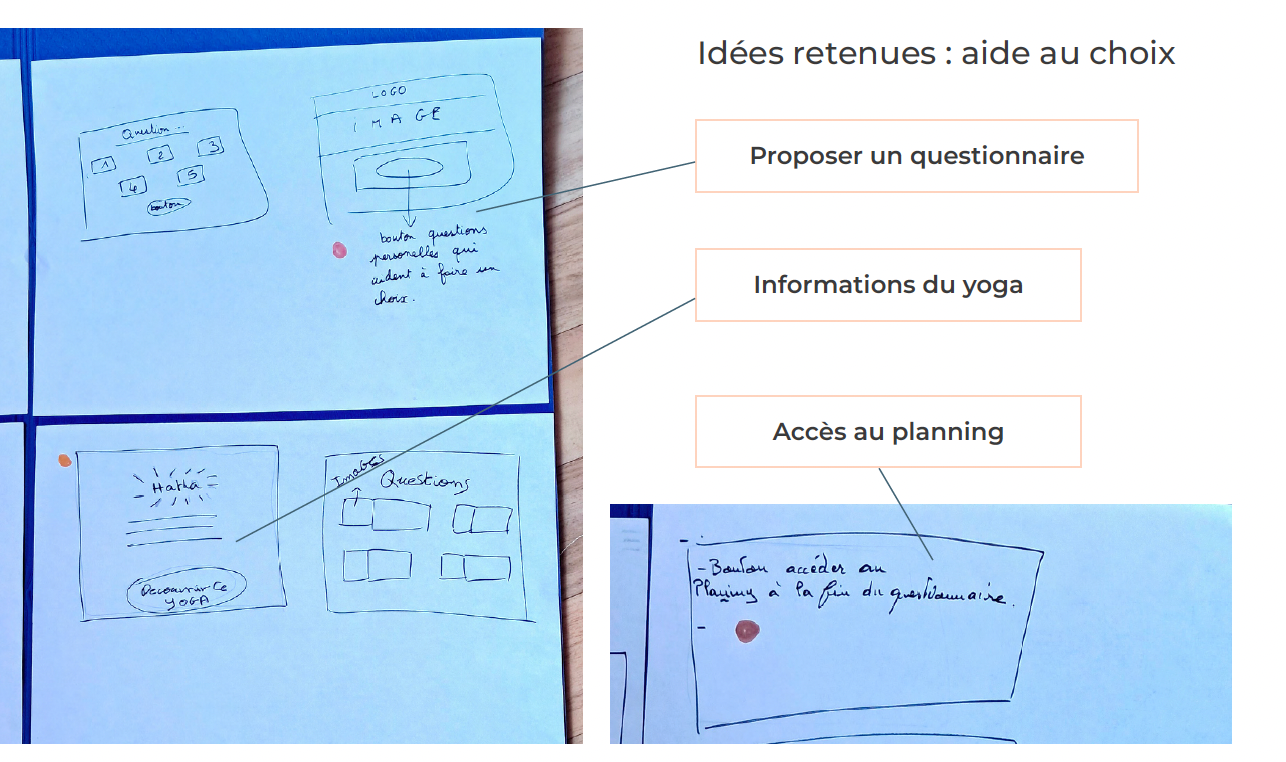 Idées retenues : aide au choix
Proposer un questionnaire
Informations du yoga
Accès au planning
Question...
1 2 3
4 5
bouton
LOGO
IMAGE
bouton questions
personelles qui
aident à faire un
choix.
Hatha
Decouvrir Ce
YOGA
Images
Questions
- Bouton accéder au
Planing à la fin du questionnaire.